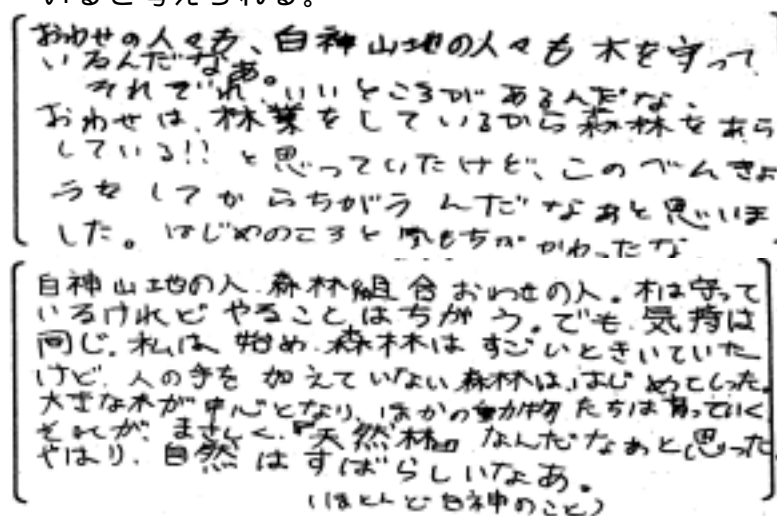 いると考えられる。
おわせの人々も、白神山地の人々も木を守って
いるんだなあ。
それぞれ。いいところがあるんだな、
おわせは、林業をしているから森林をあら
している!!と思っていたけど、このべんきょ
うをしてからちがうんだなあと思いま
した。はじめのころと気もちがかわったな
白神山地の人.森林組合おわせの人。木は守って
いるけれどやることはちがう。でも.気持は
同じ.私は、始め.森林はすごいときいていた
けど.人の手を加えていない森林は、はじめてしった。
大きな木が中心となり、ほかの動物たちは育っていく
それが、まさしく、『天然林』なんだなあと思った
やはり、自然はすばらしいなあ。
(ほとんど白神のこと)